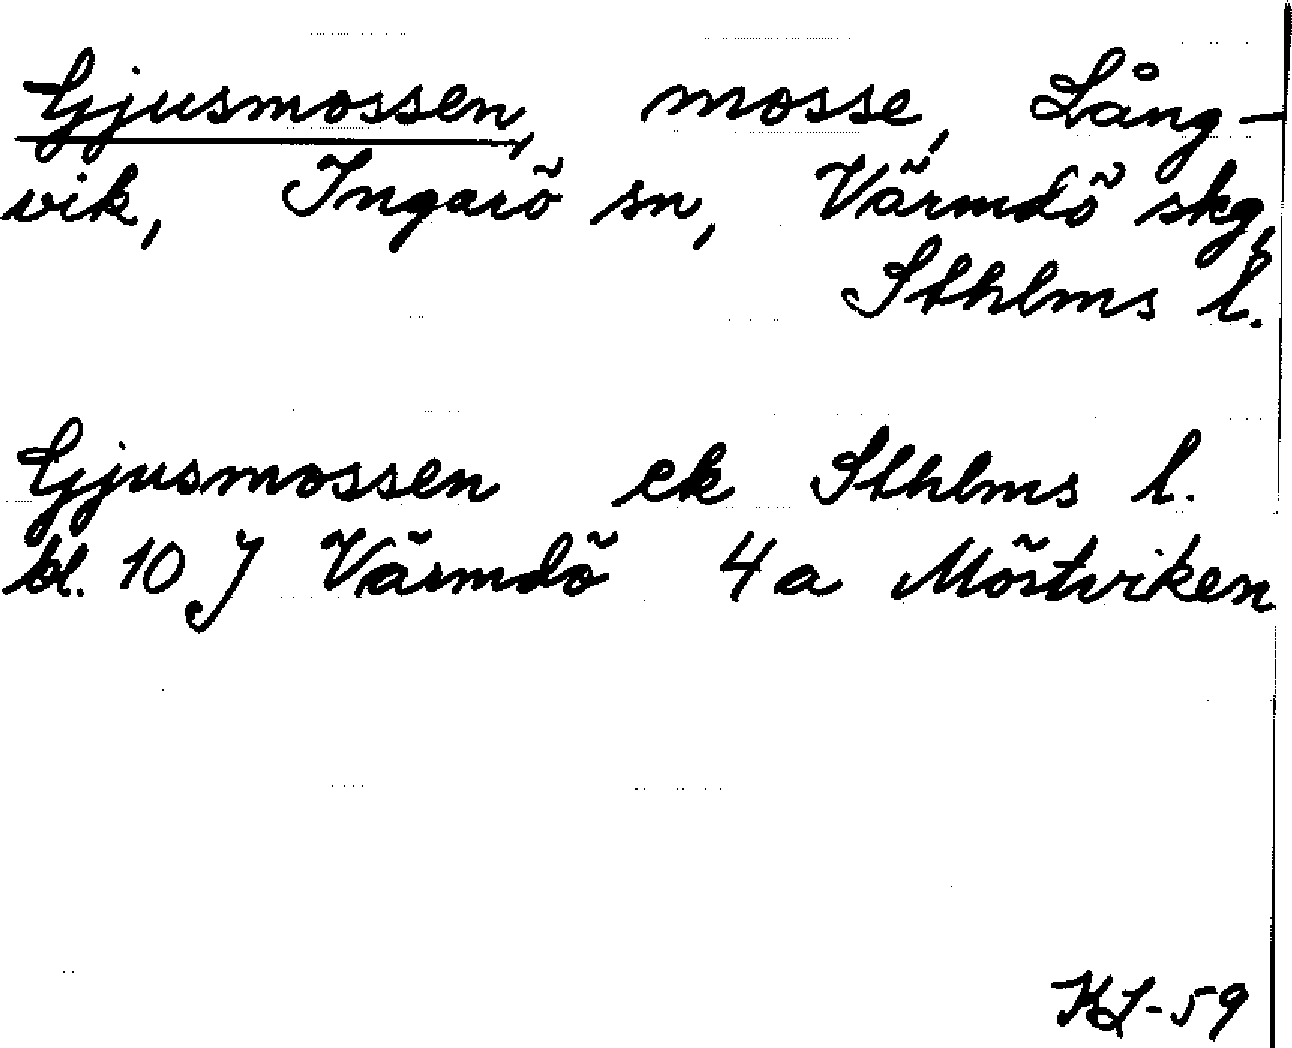 Gjusmossen, mosse, Lång-
vik, Ingarö sn, Värmdö skg,
Sthlms l.
Gjusmossen ek Sthlms l.
bl. 10 J Värmdö 4a Mörtviken
KL-59